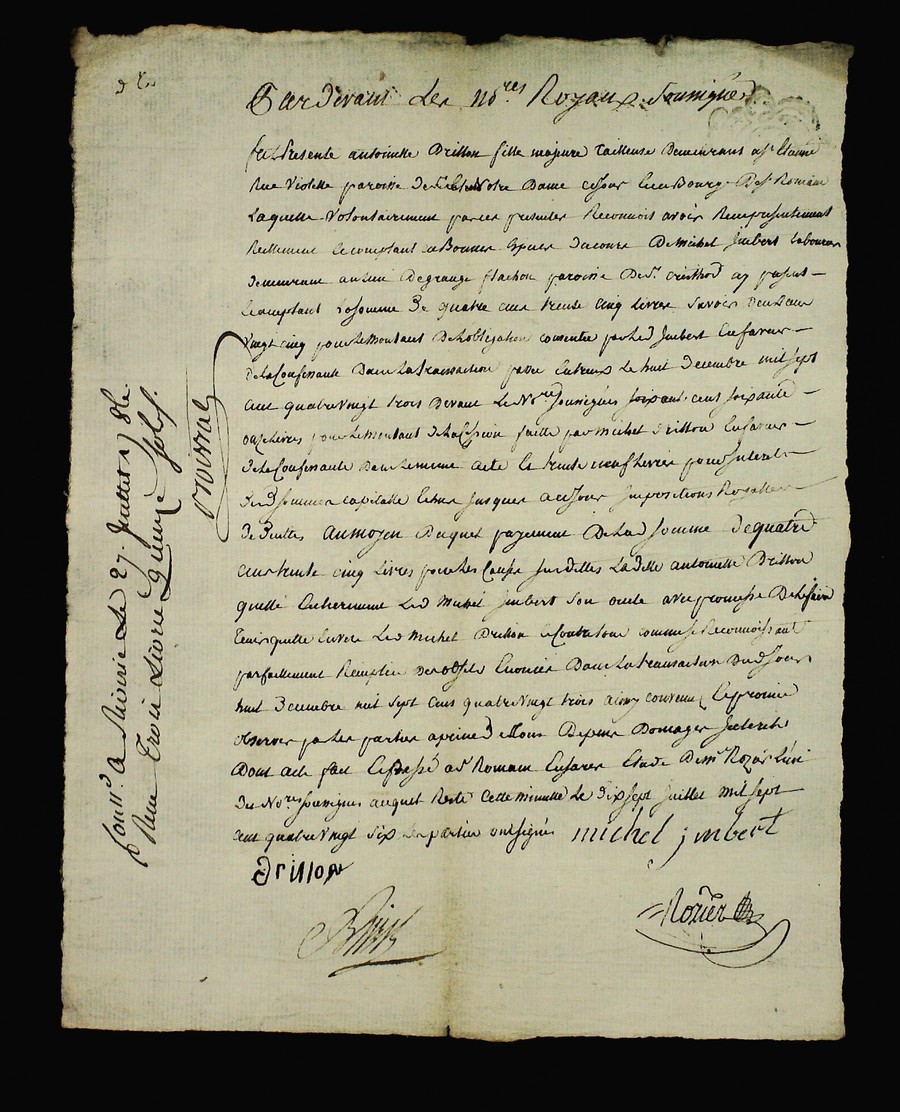 Pardevant Les No.res Royaux Soussignés
fut Presente antoinette Drillon fille majeure tailleuse Demeurant a st Etienne
Rue Violette paroisse de Notre Dame cejour au Bourg De st Romain
Laquelle Volontairement par ces presentes Reconnois avoir Reçu presentement
Reellement le comptant en Bonnes Espèces Ducours De Michel Imbert laboureur
demeurant au lieu De grange flachon paroisse De st. cristhod cy present
acceptant La somme De quatre cens trente cinq Livres Savoir Deux cens
vingt cinq pour Le Montant De Lobligation consentie par Led Imbert En faveur
De La Confessante Dans La transaction passée Entreux Le huit Decembre mil sept
cent quatre vingt trois Devant Le No.re soussignés cent soixante
onze Livres pour Le Montant de La Cession faitte par Michel Drillon En faveur
De La Confessante Dans Le meme acte Et trente neuf Livres pour Interets
Dud sommes capitalle Echus jusques a cejour Impositions Royalles
Deduites Aumoyen Duquel payement De Lad somme De quatre
cens trente cinq Livres pour Les Causes Susdittes Ladelle antoinette Drillon
quitte Entierement Led Michel Imbert Son oncle avec promesse De Le faire
tenir quitte Envers Led Michel Drillon
parfaittement Remplie des objets Enoncés Dans La transaction Dud jour
huit Decembre mil Sept cens quatre vingt trois ainsy convenu Et promis
observer par Les parties a peine De tous Depens Domages Interets
Dont acte fait Et passé a st Romain En Jarez Etude De me Rozier L'un
Des No.res soussignés auquel Reste Cette minutte Le Dix sept juillet Mil sept
cent quatre vingt six Les parties ont signés michel imbert
Drillon
Rozier
Contr.é a Riverie Le 27. Juillet 1786.
Reçu Trois Livres quinze sols.